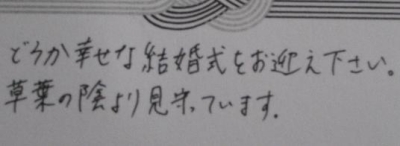 どうか幸せな結婚式をお迎え下さい。
草葉の陰より見守っています.